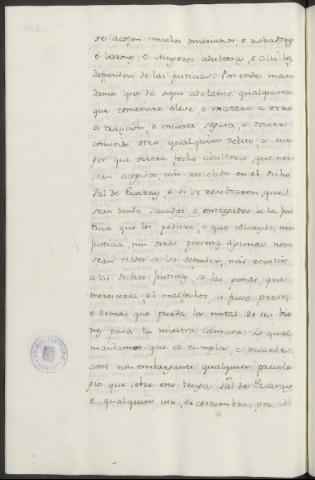 se acojen muchos omecianos, e robadores
e ladrones, e Mugeres adulteras, e alli los
defienden de las justicias: Por ende man
damos que de aqui adelante qualquiera
que cometiere aleve o matare a otro
a traycion, o muerte segura, o oviere
cometido otro qualquier delito o mu
ger que oviere fecho adulterio que non
sean acogidos nin receptados en el dicho
Val de Ezcaray, e si se receptaren, que
sean dende sacados e entregados a la jus
ticia que los pediere, e que Alcayde, nin
justicia, nin otras personas algunas non
sean osados de los defender, nin resistir
a las dichas justicias, so las penas que
meresceria el malfechor si fuese preso,
e demas que pierda la meitad de sus bie
nes para la nuestra camara: Lo qual
mandamos que se cumpla, e guarde
assi non embargante qualquier previle
gio que sobre esto tenga Val de Ezcaray
e qualquier uso, e costumbre, por